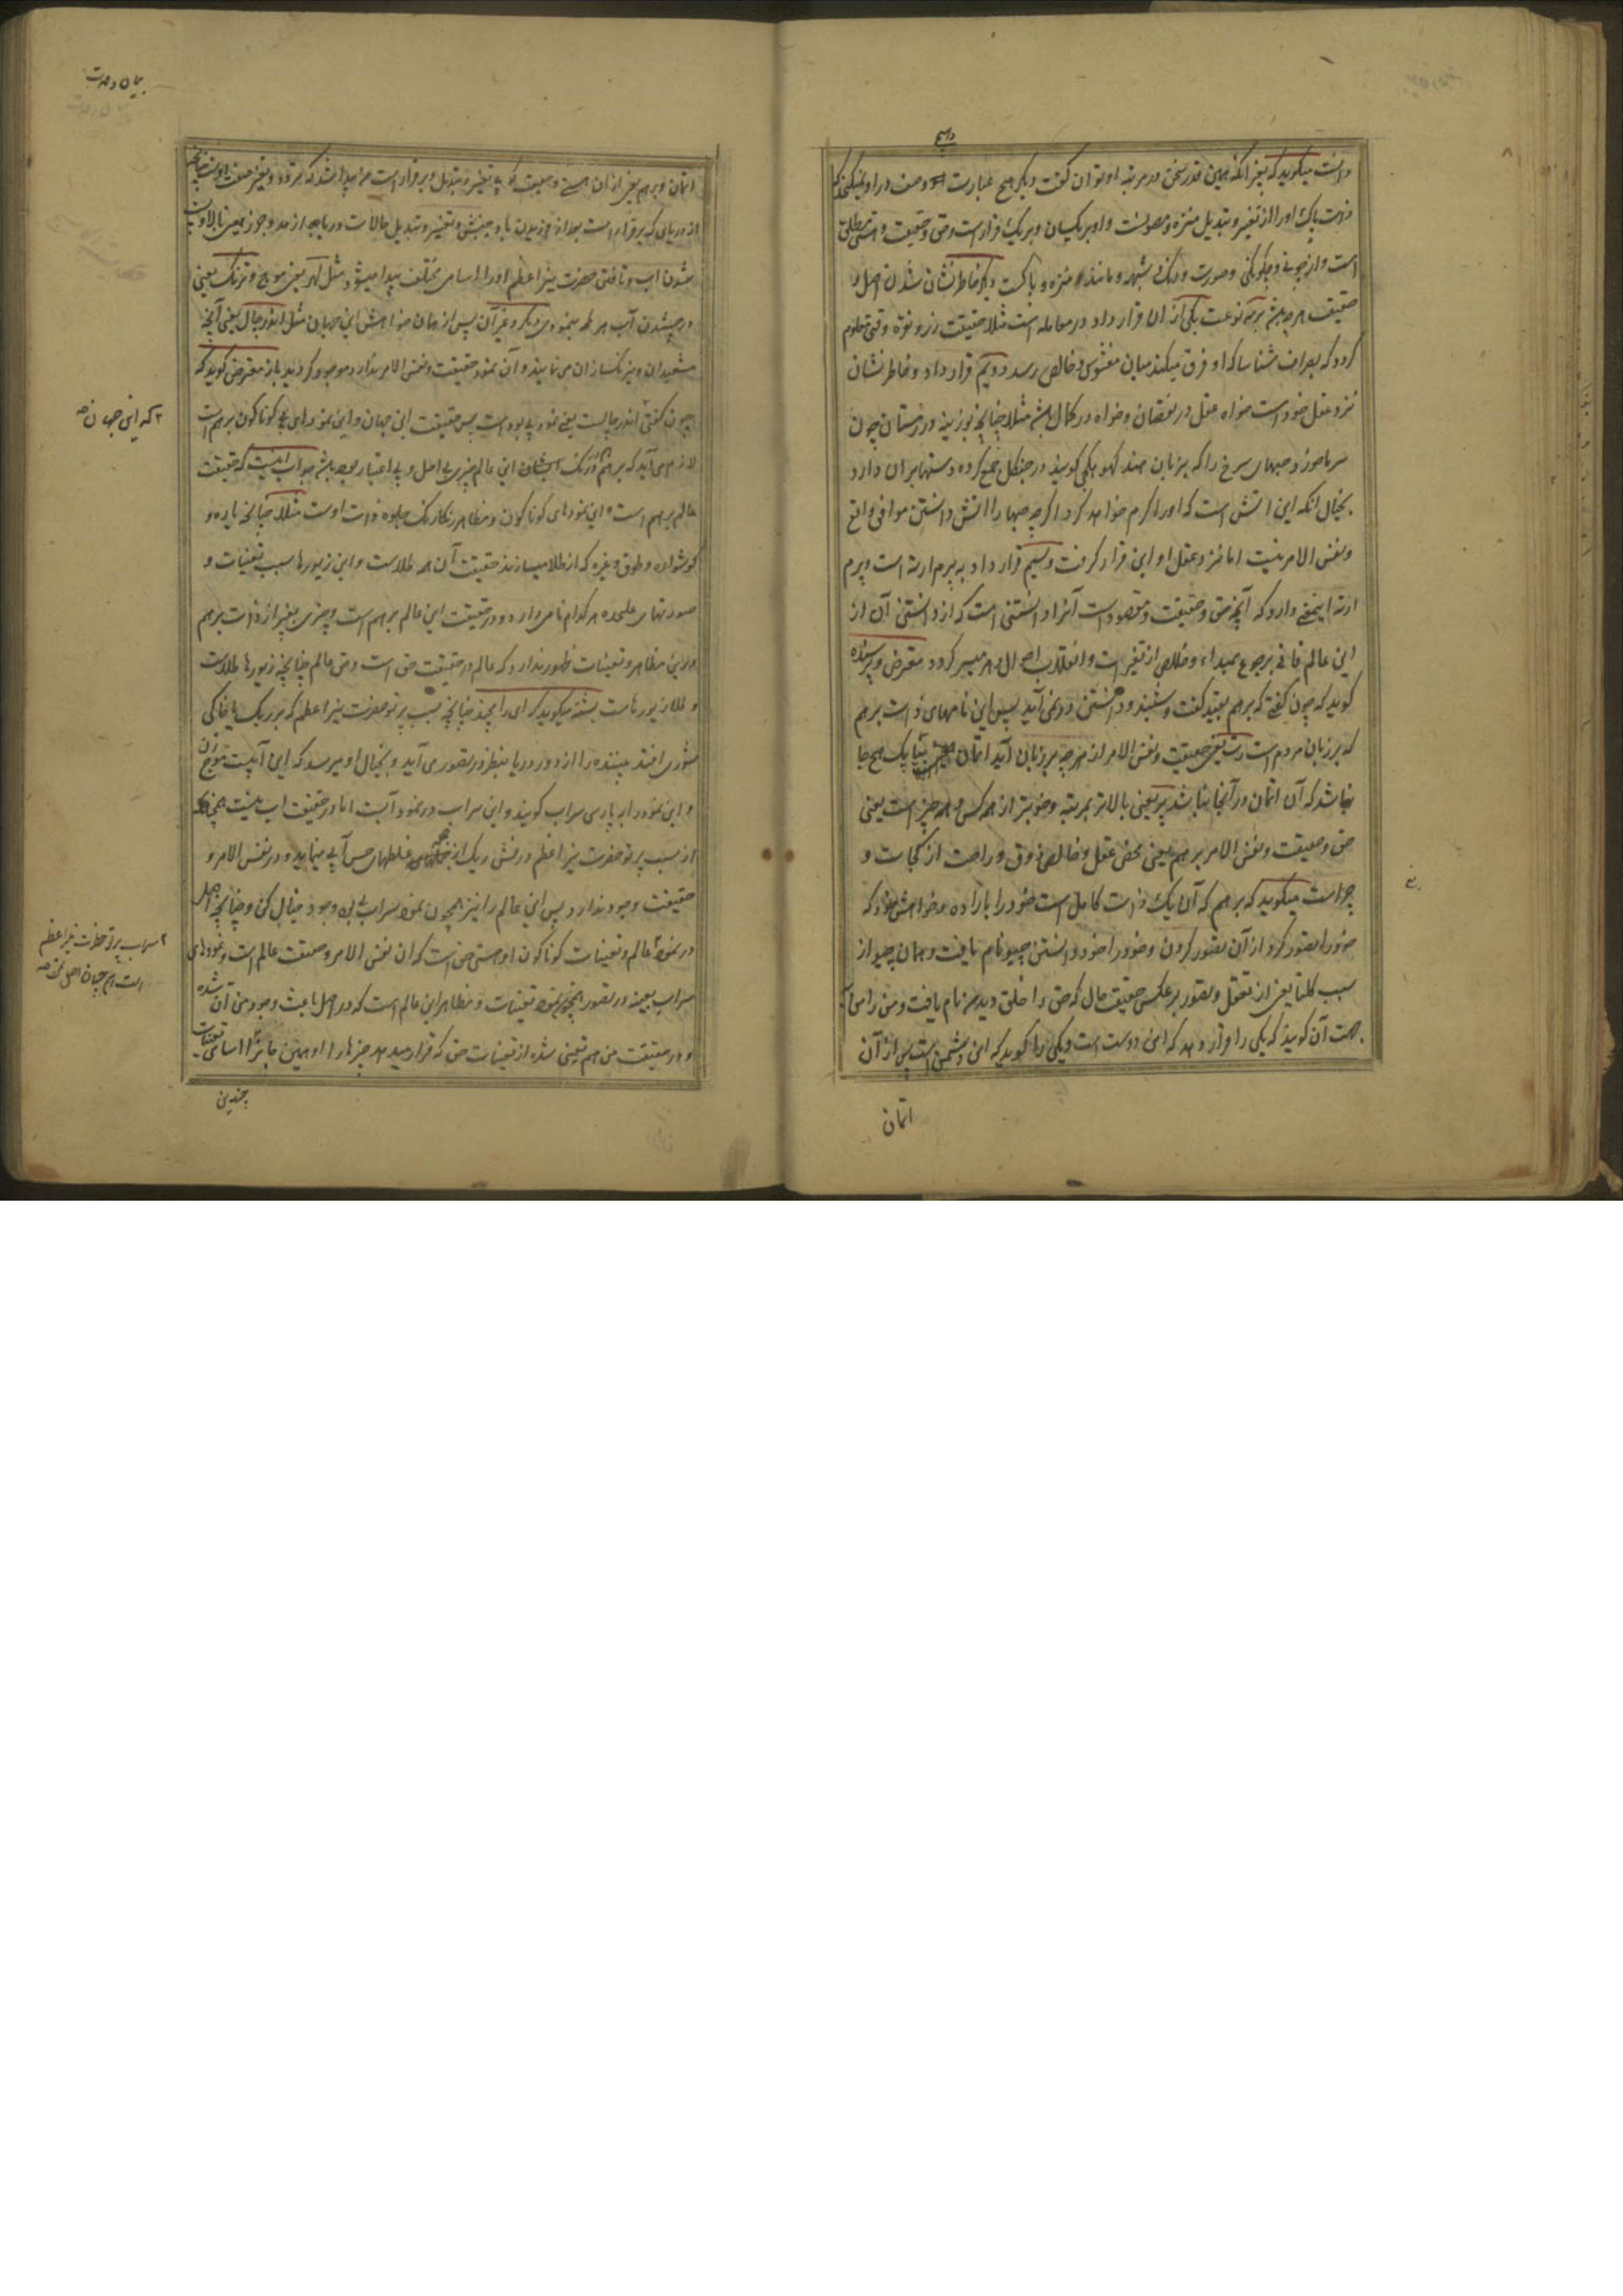 دانست میگوید که بغیر انکه همین قدر سخن در مرتبه او توان گفت دیگر هیچ عبارت و وصف در او نمیگنجد که
ذات پاک او را از تغیر و تبدیل منزه و مصونست و او بر یکسان و بر یک قرار است و حق و حقیقت و هستی مطلق
است و از چونی و چگونگی و صورت و رنگ و شبهه و مانند منزه و پاکست دیگر خاطر نشان شدن اصل و
حقیقت هر چه باشد بر سه نوعست یکی از ان قرار داد در معامله است مثلا حقیقت زر و نقره وقتی معلوم
گردد که بصراف شناسا که او فرق میکند میان مغشوش و خالص رسد دویم قرار داد و خاطر نشان
نزد عقل خود است خواه عقل در نقصان و خواه در کمال باشد مثلا چنانچه بوزینه در زمستان چون
سرما خورد حبهای سرخ را که بزبان هند گهونگچی گویند در جنگل جمع کرده دستها بر ان دارد
بخیال انکه این اتش است که او را گرم خواهد کرد اگرچه حبها را اتش دانستن موافق واقع
و نفس الامر نیست اما نزد عقل او این قرار گرفت و سیم قرار داد به پرم ارته است و پرم
ارته این معنی دارد که آنچه حق و حقیقت و مقصود است آنرا دانستنی است که از دانستن آن از
این عالم فانی برجوع بمبداء و خلاص از تغیرات و انقلاب احوال دهر میسر گردد معترض و پرسنده
گوید که چون گفتی که برهم بقید گفت و شنید و دانستن در نمی آید پس این نامهای ذات برهم
که بر زبان مردم است رت یعنی حقیقت و نفس الامر از هر چه بر زبان آید اتمان یعنی بیاپک هیچ جا
نباشد که آن اتمان در آنجا نباشد پر یعنی بالاتر بمرتبه و خوبتر از همه کس و همه چیز است یعنی
حق و حقیقت و نفس الامر برهم یعنی محض عقل و خالص ذوق و راحت از کجاست و
چراست میگوید که برهم که آن یک ذات کامل است خود را باراده و خواهش خود که
خود را تصور کرد از آن تصور کردن و خود را خود دانستن جیو نام یافت و همان جیو از
سبب کلپنا یعنی از تعقل و تصور بر عکس حقیقت حال که حق را خلق دید من نام یافت و من را من از
جهت آن گویند که یکی را قرار دهد که این دوست است و یکی را گوید که این دشمن است پس از آن
اتمان
بیان وحدت
اتمان و برهم یعنی از ان هستی و حقیقت که بی تغیر و تبدیل و بر قرار است من پیدا شد که تردد و تغیر صفت اوست چنانچه
از دریائی که بر قرار است بعد از وزیدن باد و جنبش و تغیر و تبدیل حالات دریا چه از مد و جزر یعنی بالا و پست
شدن اب و تافتن حضرت نیر اعظم او را اسامی مختلف پیدا میشود مثل لهر یعنی موج و ترنگ یعنی
درخشیدن آب هر طرف بنمودی دیگر و غیر آن پس از همان من خواهش این جهان مثل اندرجال یعنی آنچه
مشعبدان و نیرنگسازان می نمایند و آن نمود حقیقت و نفس الامر ندارد موجود گردید باز معترض گوید که
چون گفتی اندرجالست یعنی نمود بی بود است پس حقیقت این جهان و این نمودهای گوناگون برهم است
۲ که این جهان صح
لازم می آید که برهم در رنگ ایشان این عالم چیزی بی اصل و بی اعتبار بوده باشد جواب اینست که حقیقت
عالم برهم است و این نمودهای گوناگون و مظاهر رنگارنگ جلوه ذات اوست مثلا چنانچه یاره و
گوشواره و طوق و غیره که از طلا میسازند حقیقت آن همه طلاست و این زیورها بسبب تعینات و
صورتهای علیحده هر کدام نامی دارد و در حقیقت این عالم برهم است و چیزی بغیر از ذات برهم
در این مظاهر و تعینات ظهور ندارد که عالم در حقیقت حق است و حق عالم چنانچه زیورها طلاست
و طلا زیورهاست بششته میگوید که ای رامچند چنانچه بسبب پرتو حضرت نیر اعظم که بر ریگ یا خاکی
شوری افتد بیننده را از دور دریا بنظر و در تصور می آید و بخیال او میرسد که این آبیست موج زن
و این نمود را به پارسی سراب گویند و این سراب در نمود آبست اما در حقیقت اب نیست همچنانکه
از سبب پرتو حضرت نیر اعظم درخش ریگ از غلطهای حس آبی مینماید و در نفس الامر و
حقیقت وجود ندارد پس این عالم را نیز همچون نمود سراب بی بود وجود خیال کن و چنانچه اصل
در نمود عالم و تعینات گوناگون او هستی حق است که ان نفس الامر و حقیقت عالم است و نمودهای
۲ سراب پرتو حضرت نیر اعظم
است همچنان اصل نمود صح
سراب بعینه در تصور همچو نمود تعینات و مظاهر این عالم است که در اصل باعث وجود من آن شده
و در حقیقت من هم تعینی شده از تعینات حق که قرار میدهد چیزها را او همین جا بنا اسامی تعینات
چندین